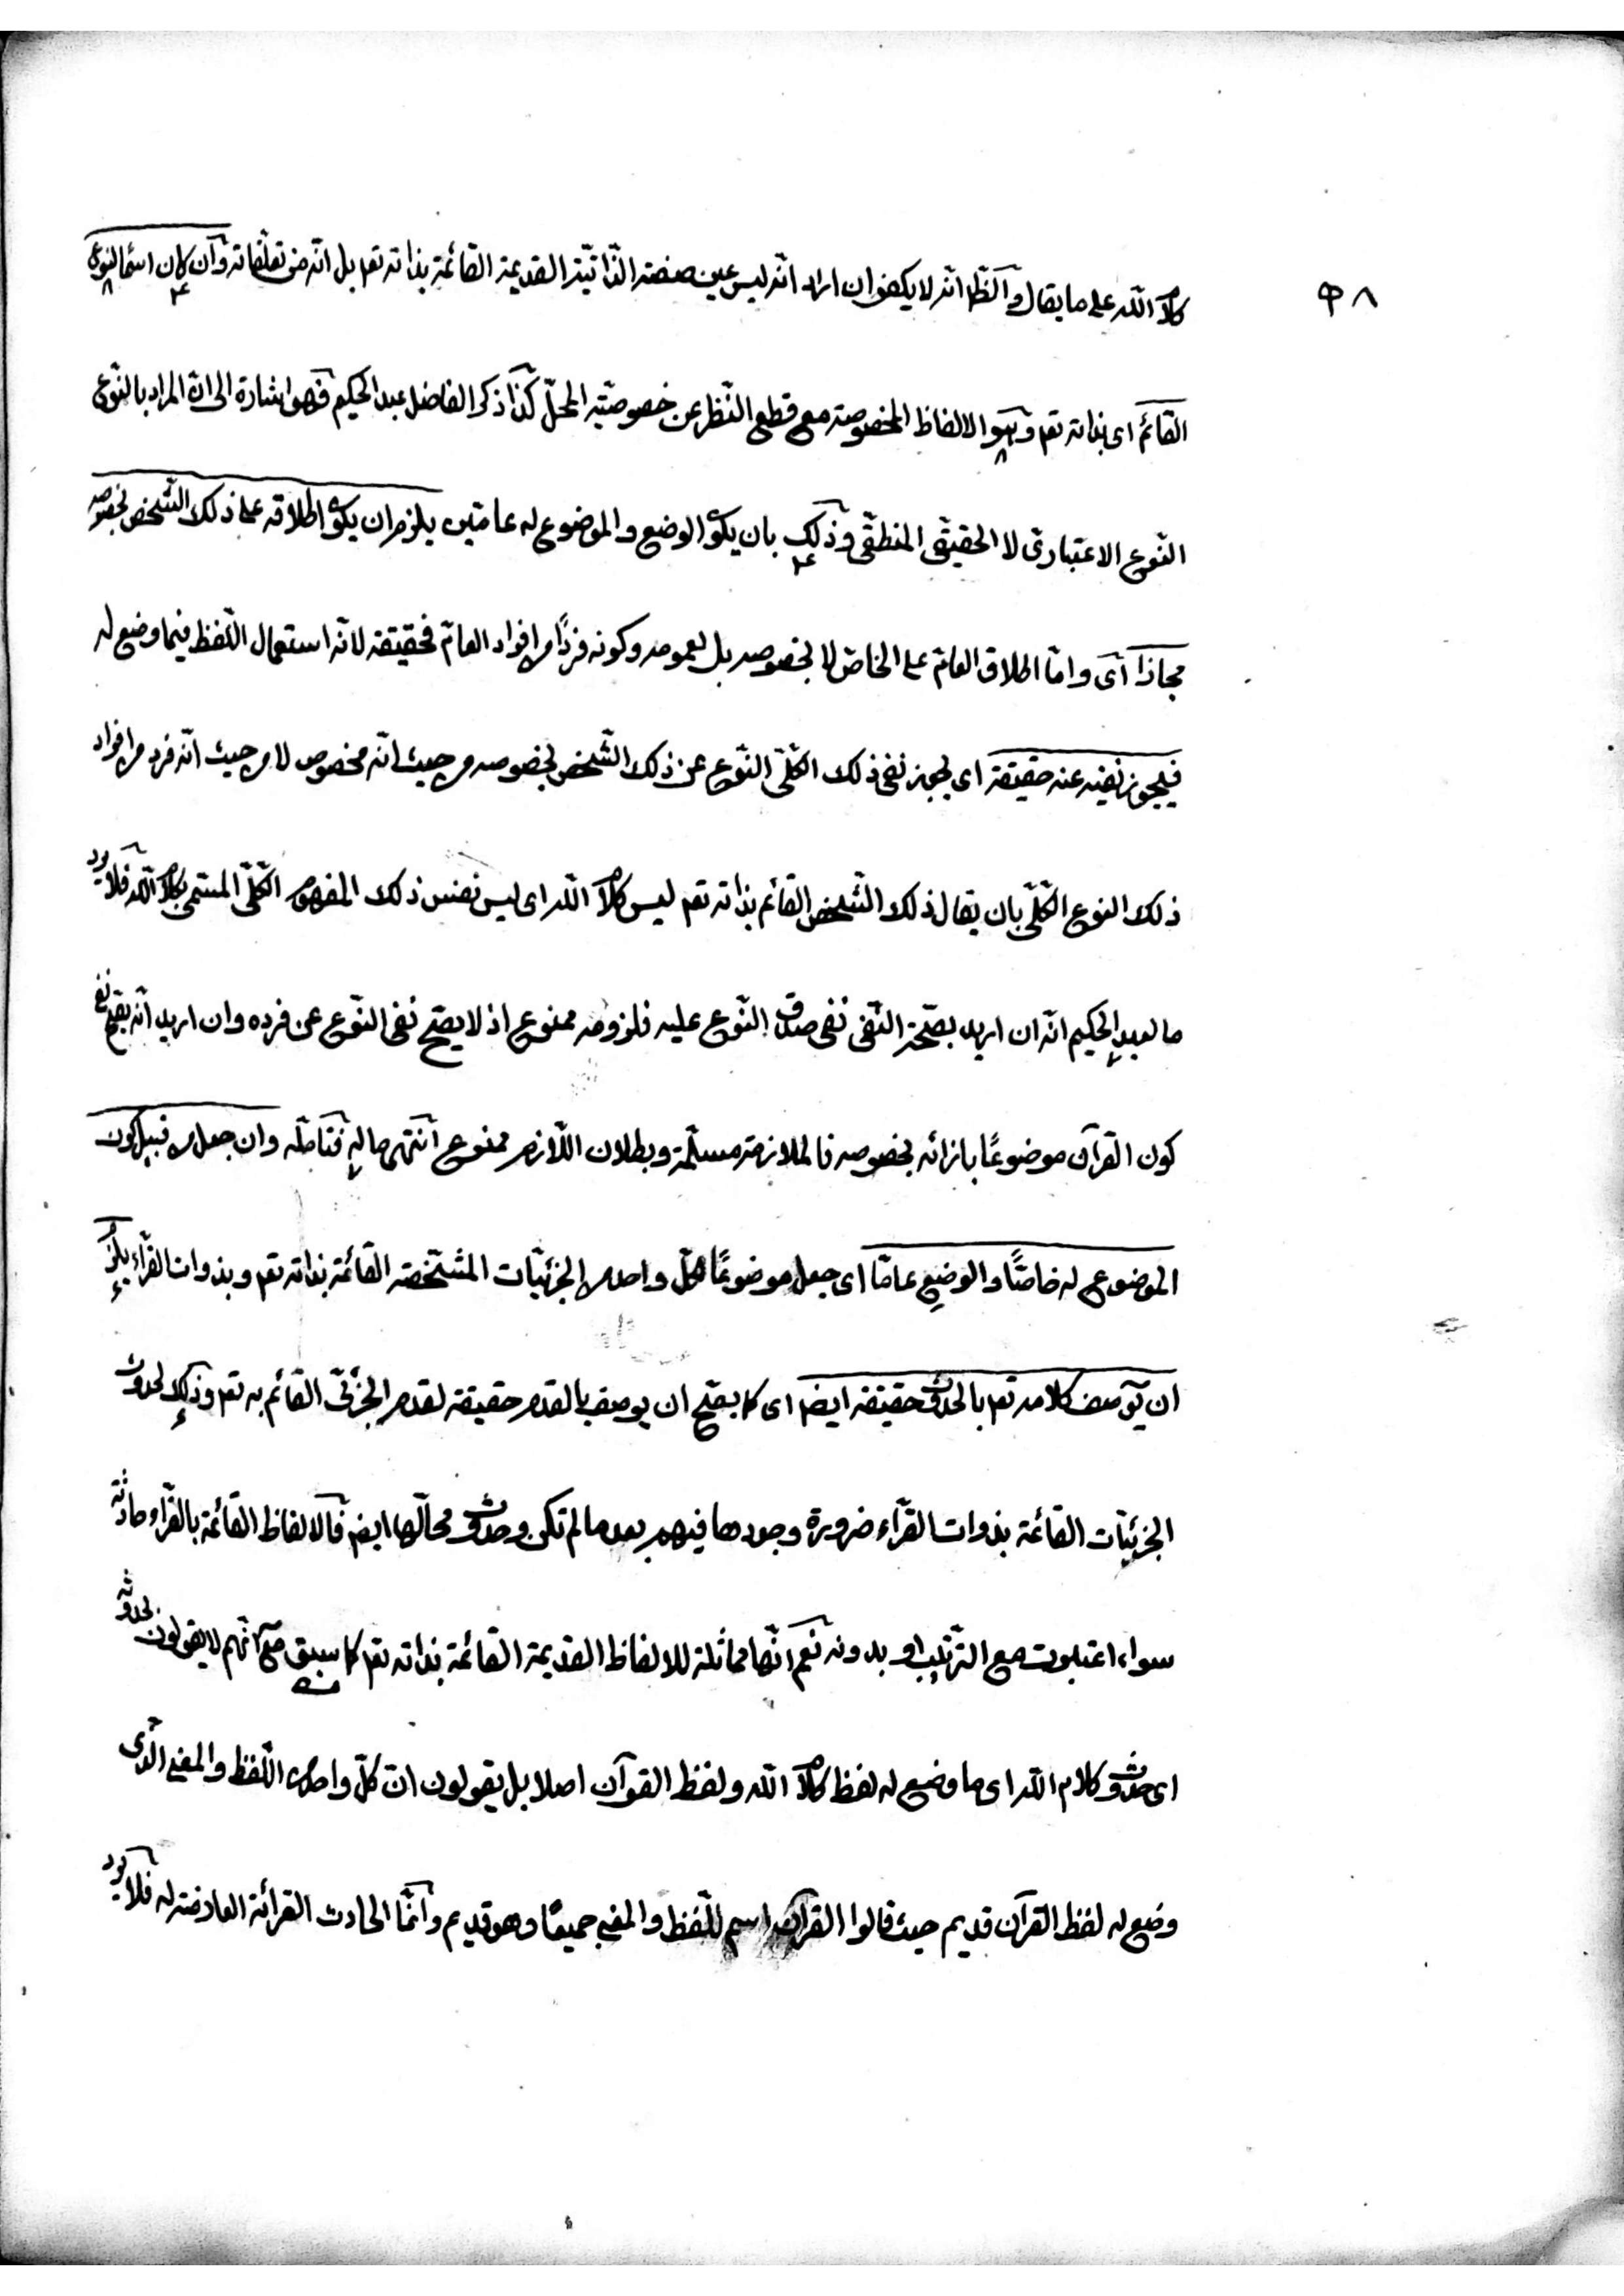 ٩٨
كلام الله على ما يقال والظ انه لا يكفر ان اراد انه ليس عين صفته الذاتية القديمة القائمة بذاته تعم بل انه من تعلقاته وان كان اسما للنوع
القائم اى بذاته تعم وهو الالفاظ المخصوصة مع قطع النظر عن خصوصية المحل كذا ذكر الفاضل عبد الحكيم فهو اشارة الى ان المراد بالنوع
النوع الاعتبارى لا الحقيقى المنطقى وذلك بان يكون الوضع والموضوع له عامين يلزم ان يكون اطلاقه على ذلك الشخص بخصوصه
مجازا اى واما اطلاق العام على الخاص لا بخصوصه بل بعمومه وكونه فردًا من افراد العام فحقيقة لانه استعمال اللفظ فيما وضع له
فيجوز نفيه عنه حقيقة اى يجوز نفى ذلك الكلّى النوع عن ذلك الشخص بخصوصه من حيث انه مخصوص لا من حيث انه فرد من افراد
ذلك النوع الكلّى بان يقال ذلك الشخص القائم بذاته تعم ليس كلام الله اى ليس نفس ذلك المفهوم الكلّى المسمى بكلام الله فلا يرد
ما لعبد الحكيم انه ان اريد بصحة النفى نفى صدق النوع عليه فلزومه ممنوع اذ لا يصح نفى النوع عن فرده وان اريد انه يصح نفى
كون القرآن موضوعًا بازائه بخصوصه فالملازمة مسلمة وبطلان اللازم ممنوع انتهى ماله فتأمله وان جعل من قبيل كون
الموضوع له خاصًّا والوضع عامّا اى جعل موضوعًا لكل واحد من الجزئيات المشخصة القائمة بذاته تعم وبذوات القرّاء يلزم
ان يوصف كلامه تعم بالحدوث حقيقة ايضا اى كما يصح ان يوصف بالقدم حقيقة لقدم الجزئى القائم به تعم وذلك لحدوث
الجزئيات القائمة بذوات القرّاء ضرورة وجودها فيهم بعد ما لم تكن وحدوث محالّها ايض فالالفاظ القائمة بالقرّاء حادثة
سواء اعتبرت مع الترتيب او بدونه نعم انها مماثلة للالفاظ القديمة القائمة بذاته تعم كما سبق مع انهم لا يقولون بحدوثه
اى حدوث كلام الله اى ما وضع له لفظ كلام الله ولفظ القرآن اصلا بل يقولون ان كلّ واحد من اللفظ والمعنى الذى
وضع له لفظ القرآن قديم حيث قالوا القرآن اسم للّفظ والمعنى جميعًا وهو قديم وانّما الحادث القرائة العارضة له فلا يرد